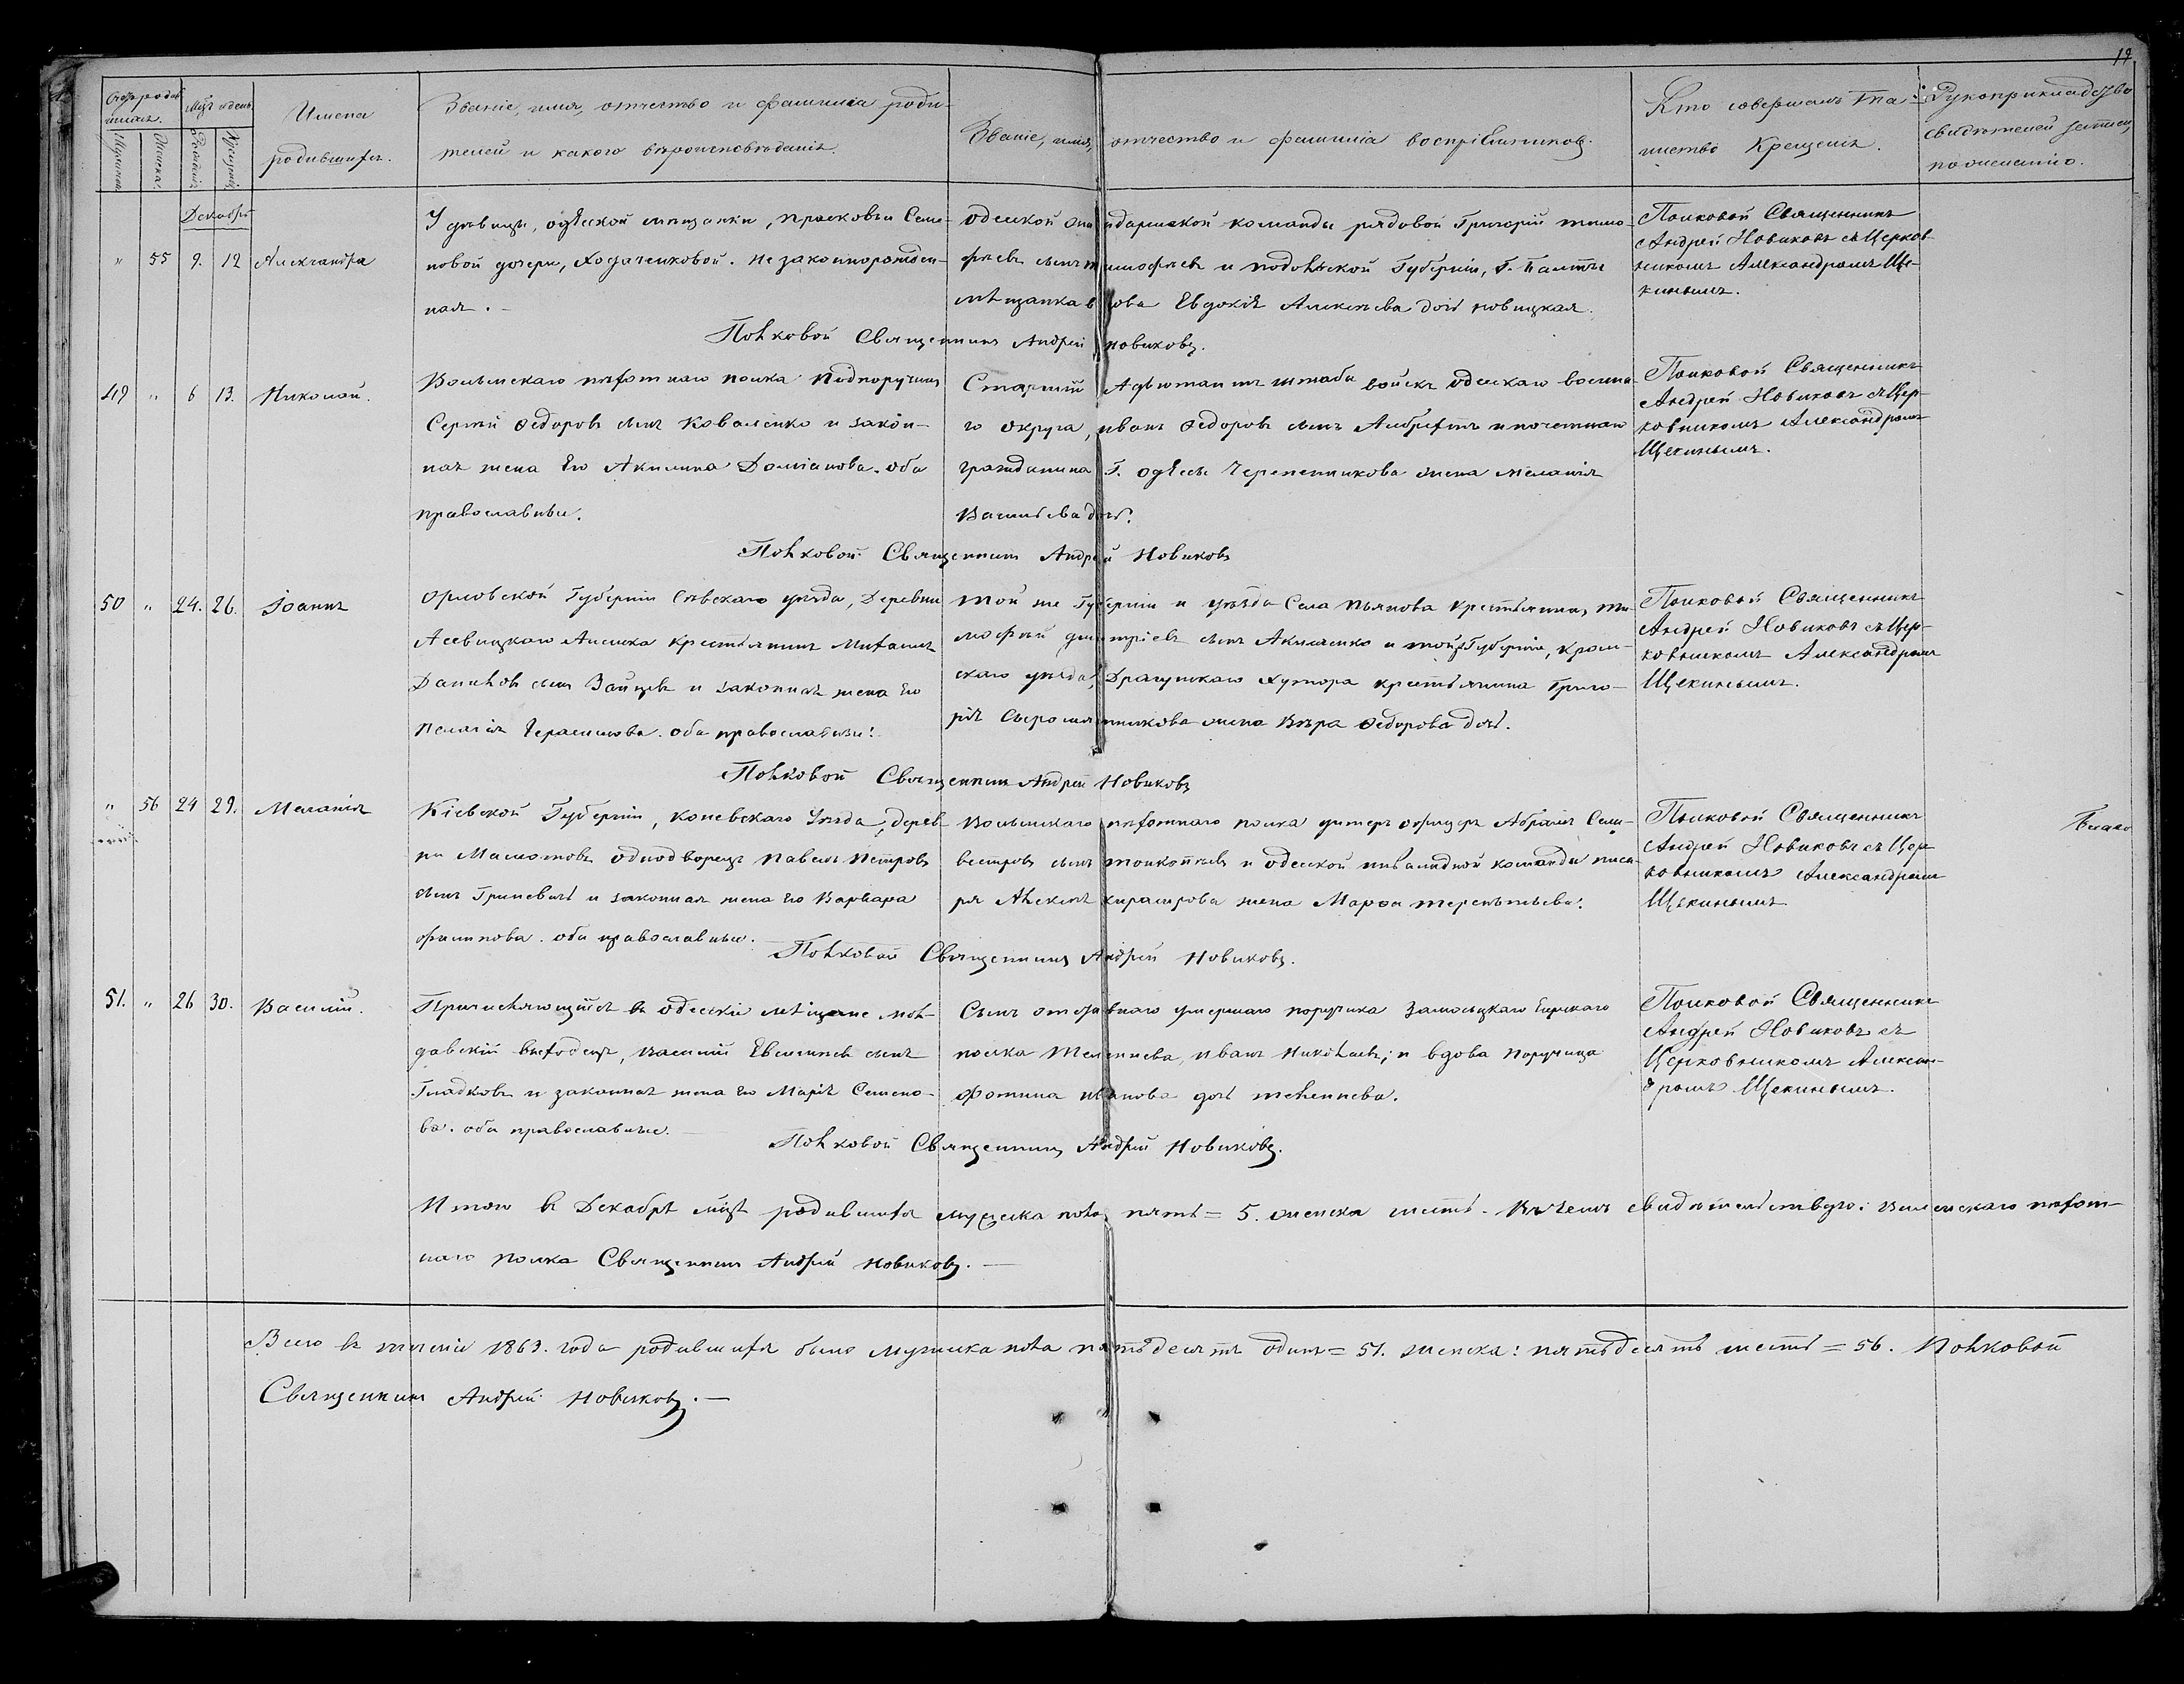 17
Счетъ родив-
шихся.
Мцъ и день
Мужеска
Женска
Рожденія
Крещенія
Имена
родившихся.
Званіе, имя, отчество и фамилія роди-
телей и какого вѣроисповѣданія.
Званіе, имя, отчество и фамилія воспріемниковъ.
Кто совершалъ Таи-
нство Крещенія.
Рукоприкладство
свидѣтелей записи
по желанію.
Декабрь
" 55 9. 12 Александра
У дѣвицы, одеской мѣщанки, Прасковьи Семе-
новой дочери, Ходаченковой. Незаконнорожден-
ная. –
одеской жандармской команды рядовой Григорій Тимо-
фѣевъ сынъ Тимофѣевъ и Подольской Губерніи, Г. Балты
мѣщанка вдова Евдокія Алексѣева дочь Новицкая.
Полковой Священникъ
Андрей Новиковъ съ Церков-
никомъ Александромъ Ще-
кинымъ.
Полковой Священникъ Андрей Новиковъ.
49 " 6 13. Николай.
Волынскаго пѣхотнаго полка Подпоручикъ
Сергѣй Федоровъ сынъ Коваленко и закон-
ная жена его Акилина Доміанова. оба
православные.
Старшій Адъютантъ штаба войскъ одескаго военна-
го округа, Иванъ Федоровъ сынъ Албрехтъ и почетнаго
гражданина Г. Одессы Черепенникова жена Меланія
Васильева дочь.
Полковой Священникъ
Андрей Новиковъ съ Цер-
ковникомъ Александромъ
Щекинымъ.
Полковой Священникъ Андрей Новиковъ
50 " 24. 26. Іоаннъ
Орловской Губерніи Сѣвскаго уѣзда, Деревни
крестьянинъ Михаилъ
Даниловъ сынъ Зайцевъ и законная жена его
Пелагія Герасимова. оба православные.
Той же Губерніи и уѣзда Села Пьянова крестьянинъ Ти-
мофѣй Дмитріевъ сынъ Акименко и той Губерніи, Кром-
скаго уѣзда, Драгунскаго Хутора крестьянина Григо-
рія Сыромятникова жена Вѣра Федорова дочь.
Полковой Священникъ
Андрей Новиковъ съ Цер-
ковникомъ Александромъ
Щекинымъ.
Полковой Священникъ Андрей Новиковъ
" 56 24 29. Меланія
Кіевской Губерніи, Каневскаго Уѣзда, дерев-
ни одподворецъ Павелъ Петровъ
сынъ Гриневичь и законная жена его Варвара
Филипова. оба православные.
Волынскаго пѣхотнаго полка унтеръ офицеръ Абрамъ Сели-
верстровъ сынъ и одеской инвалидной команды писа-
ря Алексѣя жена Марѳа Терентьева.
Полковой Священникъ
Андрей Новиковъ съ Цер-
ковникомъ Александромъ
Щекинымъ
Полковой Священникъ Андрей Новиковъ.
51. " 26 30. Василій.
Причисляющійся въ одескіе мѣщане Мол-
давскій выходецъ, Василій сынъ
Гладковъ и законная жена его Марія Семено-
ва. оба православные.
Сынъ отставнаго умершаго поручика Замосцкаго Егерскаго
полка Иванъ Николаевъ; и вдова Поручица
Фотина Иванова дочь
Полковой Священникъ
Андрей Новиковъ съ
Церковникомъ Алексан-
дромъ Щекинымъ.
Полковой Священникъ Андрей Новиковъ.
Итого въ Декабрѣ мцѣ родившихся мужеска пола пять = 5. женска шесть. Въ чемъ свидѣтельствую: Волынскаго пѣхот-
наго полка Священникъ Андрей Новиковъ. –
Всего въ теченіи 1863. года родившихся было мужеска пола пятьдесятъ одинъ = 51. женска: пятьдесятъ шесть = 56. Полковой
Священникъ Андрей Новиковъ. –